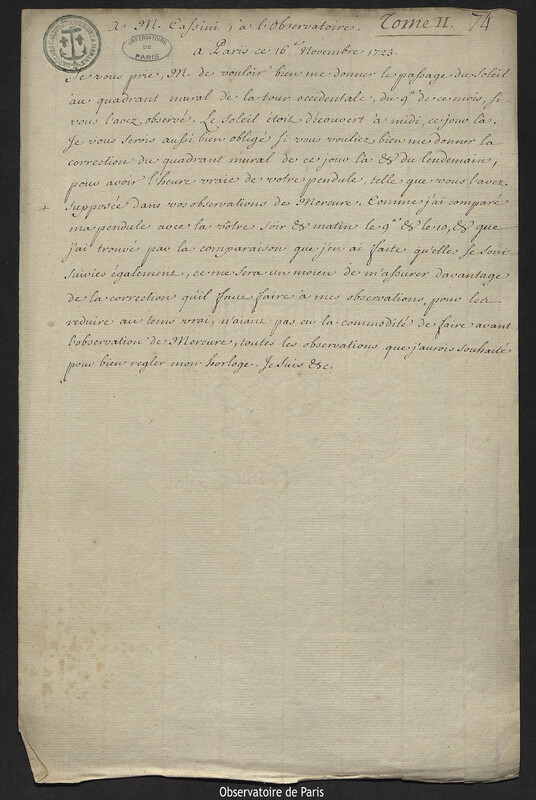 A M. Cassini, à l'Observatoire. Tome II. 74
OBSERVATOIRE DE PARIS
a Paris ce 16.e Novembre 1723.
Je vous prie, M. de vouloir bien me donner le passage du Soleil
au quadrant mural de la tour occidentale, du 9.e de ce mois, si
vous l'avez observé. Le Soleil étoit découvert à midi, ce jour là.
Je vous serois aussi bien obligé si vous vouliez bien me donner la
correction du quadrant mural de ce jour là & du lendemain,
pour avoir l'heure vraie de votre pendule, telle que vous l'avez
supposée dans vos observations de Mercure. Comme j'ai comparé
ma pendule avec la vôtre soir & matin le 9.e & le 10, & que
j'ai trouvé par la comparaison que j'en ai faite qu'elles se sont
suivies également, ce me sera un moien de m'assurer davantage
de la correction qu'il faut faire à mes observations, pour les
reduire au tems vrai, n'aiant pas eu la commodité de faire avant
l'observation de Mercure, toutes les observations que j'aurois souhaité
pour bien regler mon horloge. Je suis &c.
Observatoire de Paris